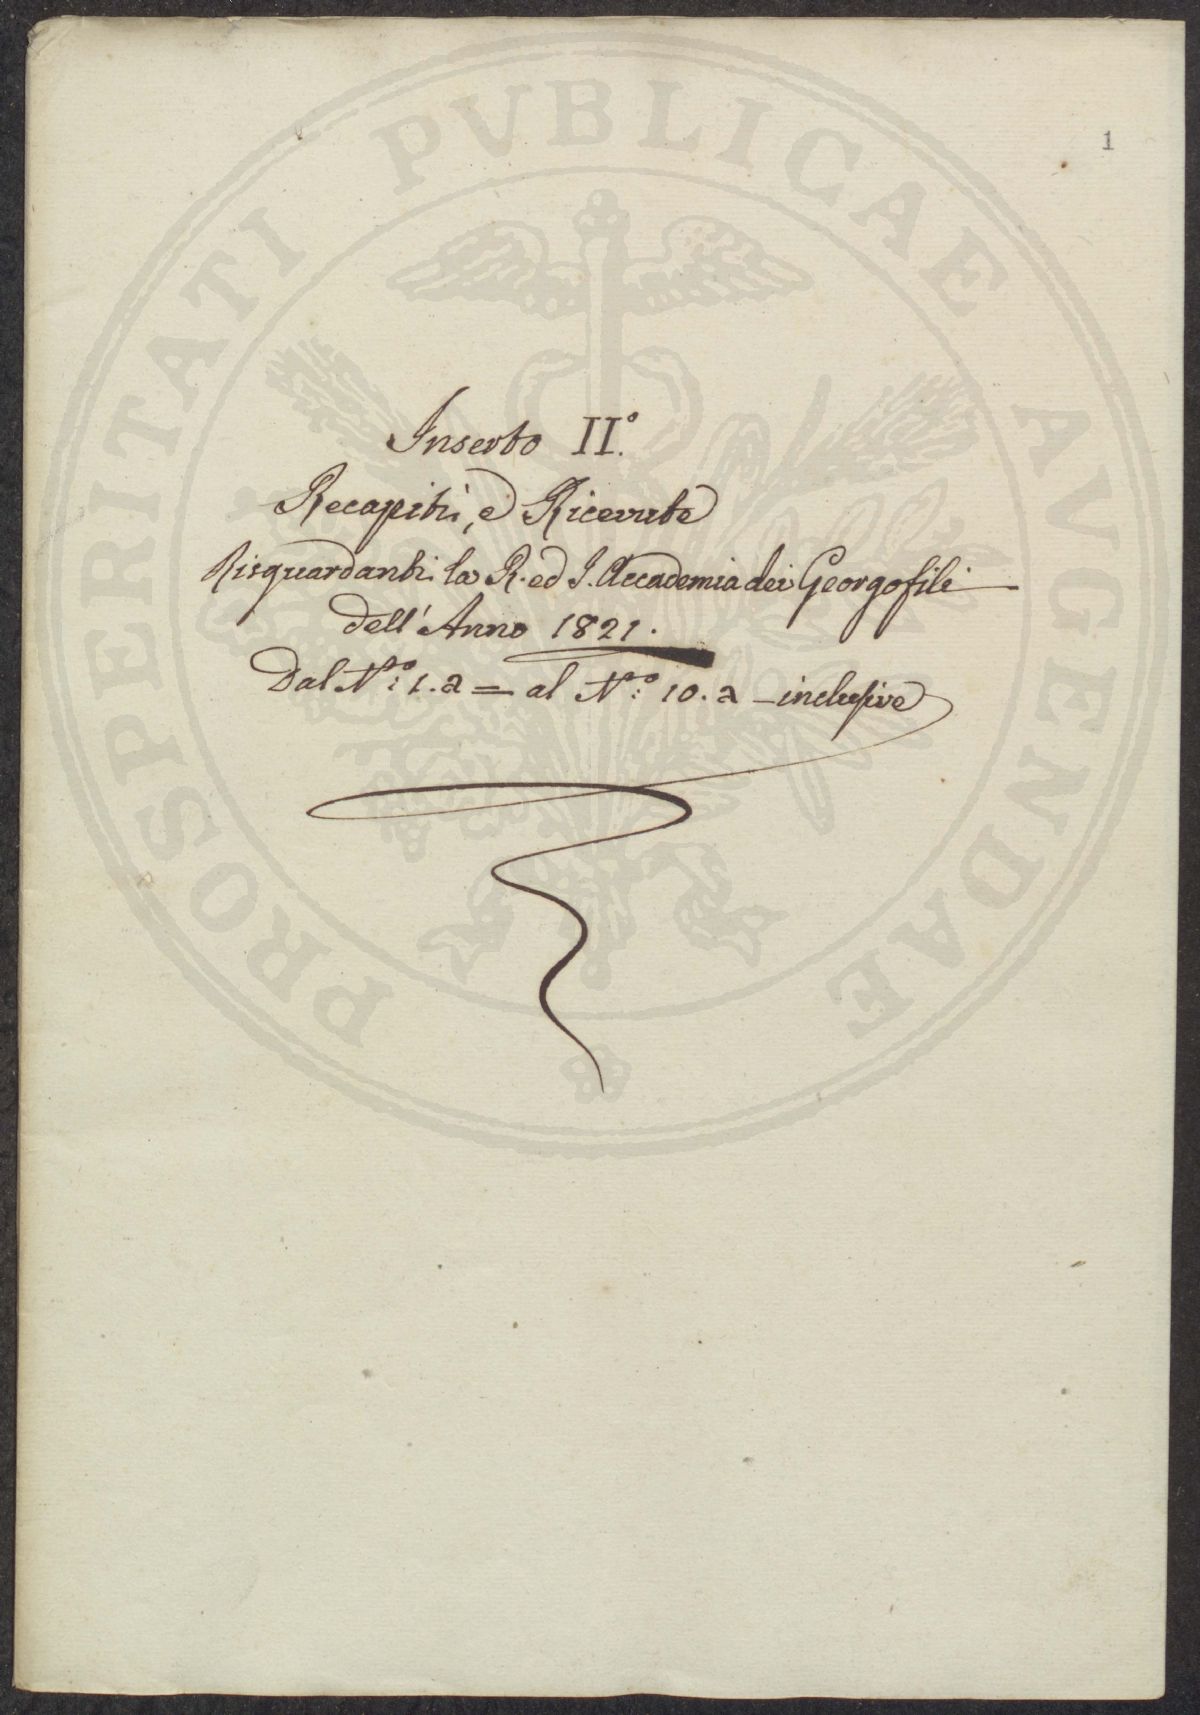 1
PROSPERITATI PVBLICAE AVGENDAE
Inserto II.º
Recapiti, e Ricevute
Risguardanti la R. ed I. Accademia dei Georgofili
dell' Anno 1821.
Dal N.º: 1. a = al N.º: 10. a - inclusive